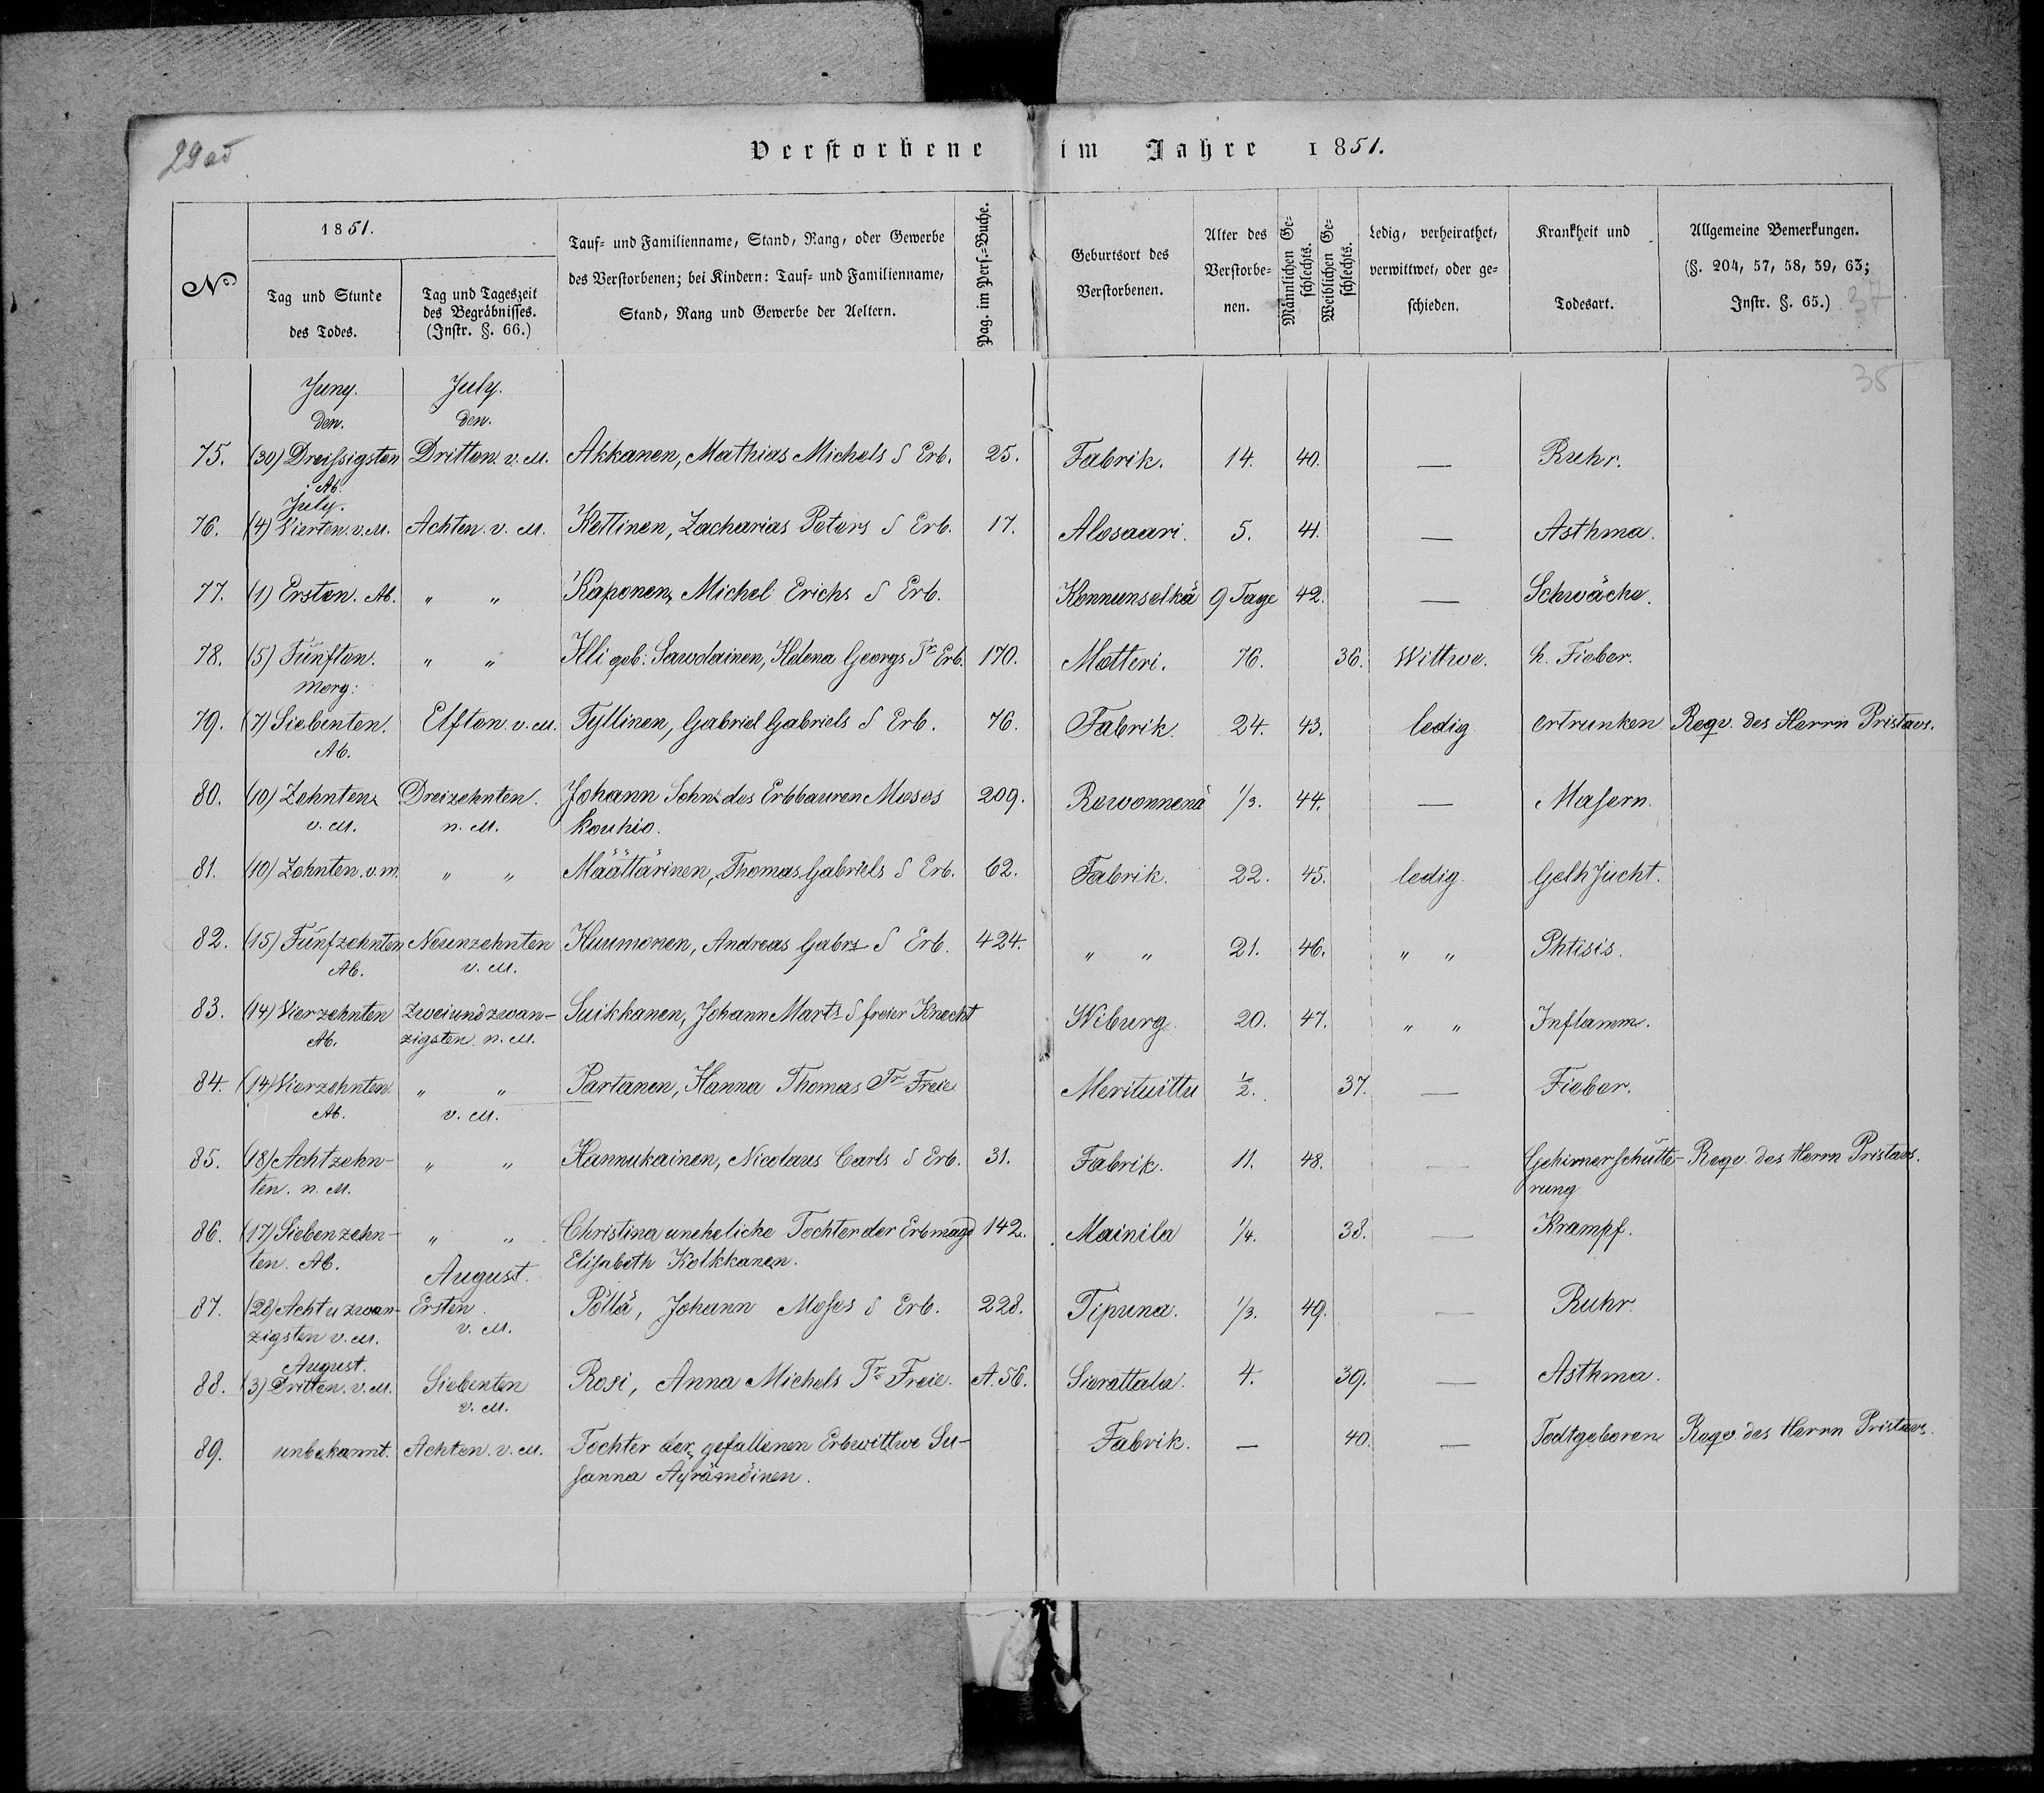 Verstorbene im Jahre 1851.
No
1851.
Tag und Stunde des Todes.
Tag und Tageszeit des Begräbnisses. (Instr. §. 66.)
Tauf- und Familienname, Stand, Rang, oder Gewerbe
des Verstorbenen; bei Kindern: Tauf- und Familienname,
Stand, Rang und Gewerbe der Aeltern.
Pag. im Pers.-Buche.
Geburtsort des Verstorbenen.
Alter des Verstorbe-nen.
Männlichen Ge-schlechts.
Weiblichen Ge-schlechts.
Ledig, verheirathet, verwittwet, oder ge-schieden.
Krankheit und Todesart.
Allgemeine Bemerkungen.
(§. 204, 57, 58, 59, 63;
Instr. §. 65.) 37
38
Juny. den. July. den.
75. (30) Dreissigsten Ab. Dritten v. M. Akkanen, Mathias Michels S Erb. 25. Fabrik. 14. 40. — Ruhr.
July.
76. (4) Vierten. v. M. Achten. v. M. Kettinen, Zacharias Peters S Erb. 17. Alosaari. 5. 41. — Asthma.
77. (1) Ersten. Ab. " " Kaponen, Michel Erichs S Erb. Konnunselkä 9 Tage 42. — Schwäche.
78. (5) Fünften. Morg: " " Illi geb: Sawolainen, Helena Georgs Tr Erb. 170. Motteri. 76. 36. Wittwe. h. Fieber.
79. (7) Siebenten. Ab. Elften. v. M. Tyllinen, Gabriel Gabriels S Erb. 76. Fabrik. 24. 43. ledig ertrunken. Reqv. des Herrn Pristavs.
80. (10) Zehnten v. M. Dreizehnten. n. M. Johann Sohn des Erbbauren Moses
Kouhio. 209. Rowonnenä 1/3. 44. — Masern.
81. (10) Zehnten. v. m. " " Määttärinen, Thomas Gabriels S Erb. 62. Fabrik. 22. 45. ledig. Gelbsucht.
82. (15) Fünfzehnten Ab. Neunzehnten v. M. Huumonen, Andreas Gabrs S Erb. 424. " " 21. 46. " " Phtisis.
83. (14) Vierzehnten Ab. Zweiundzwan-
zigsten. n. M. Suikkanen, Johann Marts S freier Knecht Wiburg. 20. 47. " " Inflamm.
84. (14) Vierzehnten. Ab. " " v. M. Partanen, Hanna Thomas Tr Freie Merituittu 1/2. 37. — Fieber.
85. (18) Achtzehn-
ten. n. M. " " Hannukainen, Nicolaus Carls S Erb. 31. Fabrik. 11. 48. — Gehirnerschütte-
rung Reqv. des Herrn Pristavs.
86. (17) Siebenzehn-
ten. Ab. " " Christina uneheliche Tochter der Erbmagd
Elisabeth Kolkkanen. 142. Mainila 1/4. 38. — Krampf.
August.
87. (28) Acht u zwan-
zigsten v. M. Ersten. v. M. Pöllä, Johann Moses S Erb. 228. Tipuna. 1/3. 49. — Ruhr.
August.
88. (3) Dritten. v. M. Siebenten v. M. Rosi, Anna Michels Tr Freie. A. 56. Sierattala. 4. 39. — Asthma.
89. unbekannt. Achten. v. M. Tochter der gefallenen Erbwittwe Su-
sanna Ayrämöinen. Fabrik. — 40. — Todtgeboren Reqv. des Herrn Pristavs.